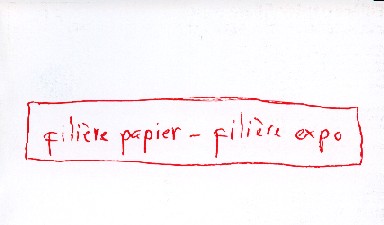 filière papier - filière expo